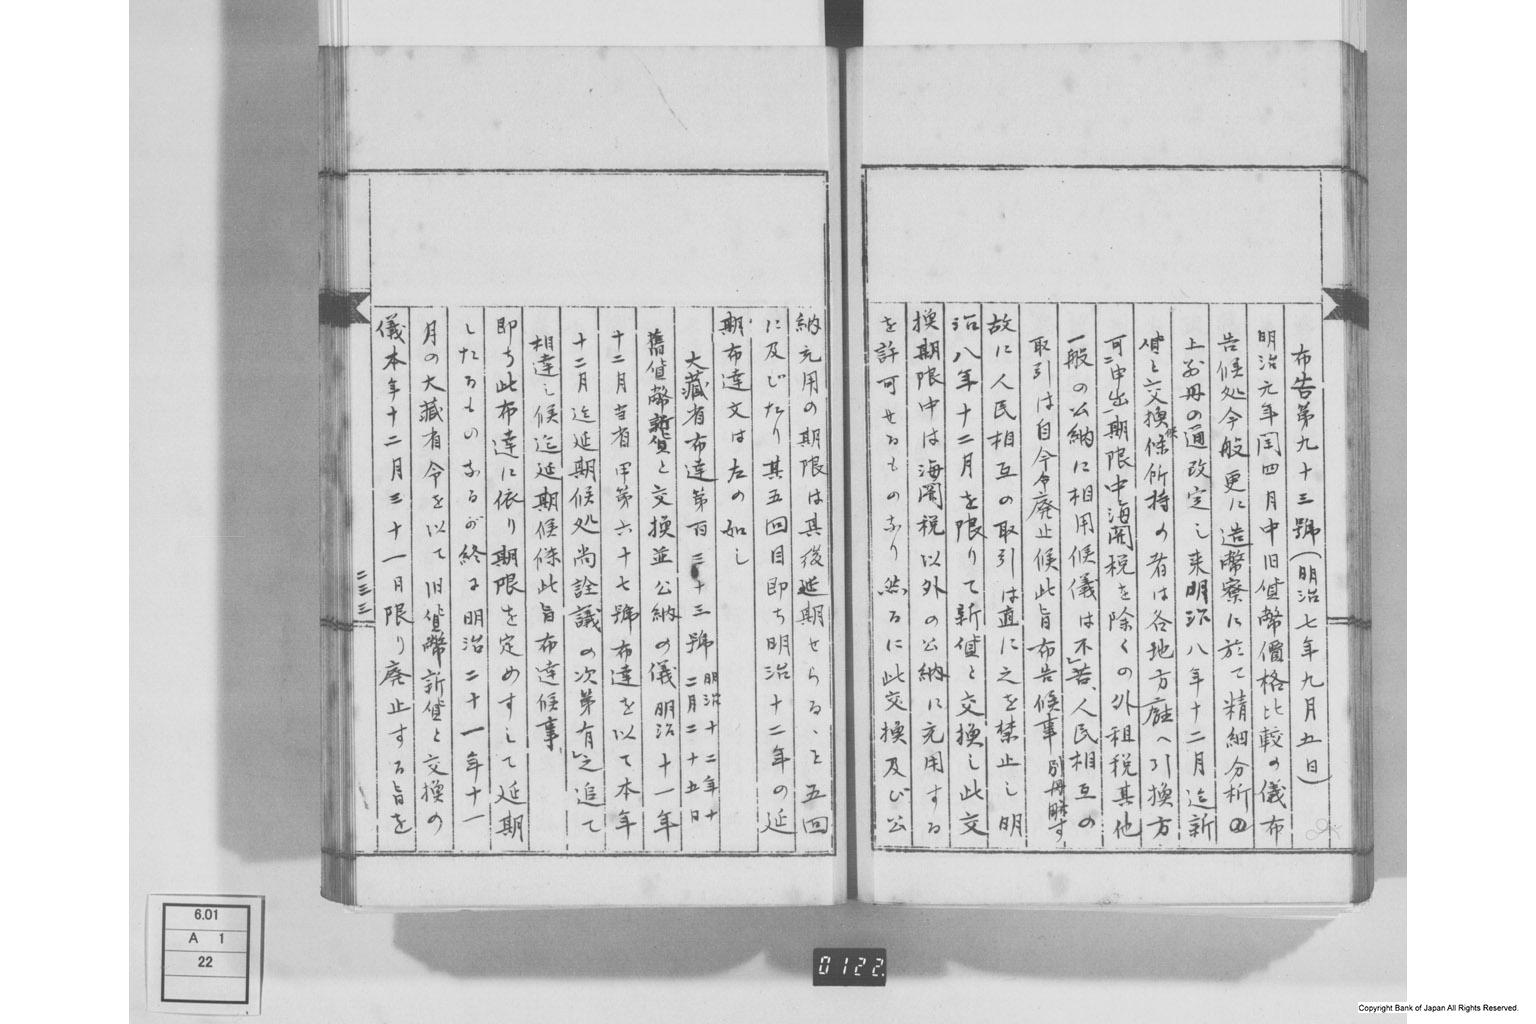 布告第九十三號(明治七年九月五日)
明治元年閏四月中旧貨幣價格比較の儀布
告候処今般更に造幣寮に於て精細分析の
上別冊の通改定し来明治八年十二月迄新
貨と交換候條所持の者は各地方廰へ引換方
可申出期限中海関税を除くの外租税其他
一般の公納に相用候儀は不苦、人民相互の
取引は自今令廃止候此旨布告候事 別冊略す
故に人民相互の取引は直に之を禁止し明
治八年十二月を限りて新貨と交換し此交
換期限中は海関税以外の公納に充用する
を許可せるものなり然るに此交換及び公
納充用の期限は其後延期せらるゝこと五回
に及びたり其五回目即ち明治十二年の延
期布達文は左の如し
大藏省布達第百三十三號 明治十二年十二月二十五日
舊貨幣新貨と交換並公納の儀明治十一年
十二月当省甲第六十七號布達を以て本年
十二月迄延期候処尚詮議の次第有之追て
相達し候迄延期候條此旨布達候事
即ち此布達に依り期限を定めすして延期
したるものなるが終に明治二十一年十一
月の大藏省令を以て旧貨幣新貨と交換の
儀本年十二月三十一日限り廃止する旨を
二三三
6.01
A 1
22
0122.
Copyright Bank of Japan All Rights Reserved.